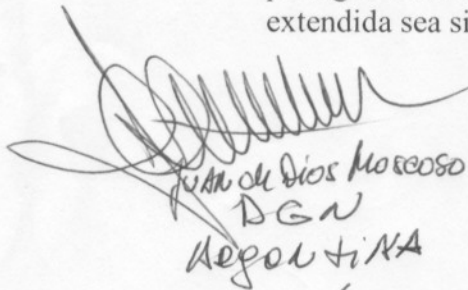 extendida sea si
Juan de Dios Moscoso
DGN
Argentina